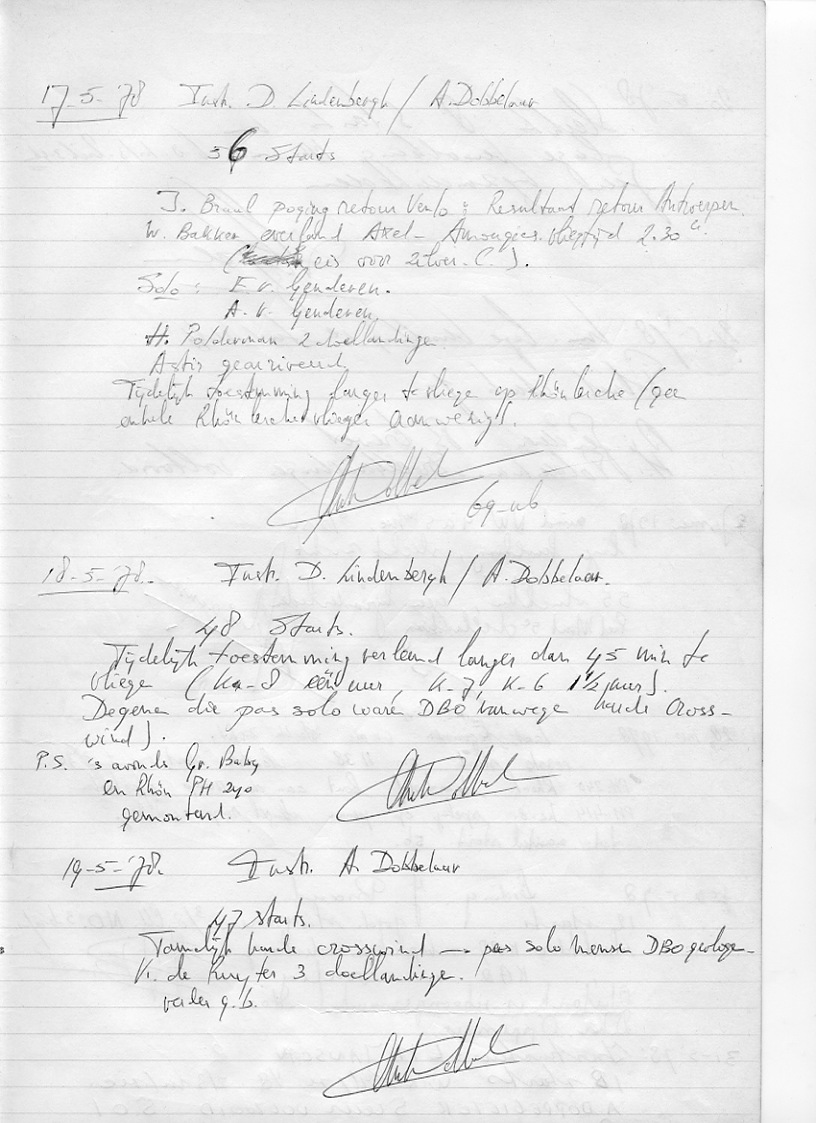 17-5-'78 Instr. D Lindenbergh / A. Dobbelaar
56 Starts
J. Braal poging retour Venlo : Resultaat retour Antwerpen.
W. Bakker overland Axel - Amougies. vliegtijd 2.30 u.
( eis voor zilver-C.).
Solo : E v. Genderen.
A. v. Genderen.
H. Polderman 2 doellandinge
Astir gearriveerd.
Tijdelijk toestemming langer te vliege op Rhönlerche (geen
enkele Rhönlerchevlieger aanwezig).
18-5-'78. Instr. D. Lindenbergh / A. Dobbelaar.
48 Starts.
Tijdelijk toestemming verleend langer dan 45 min te
vliege (Ka-8 één uur, K-7, K-6 1½ uur).
Degene die pas solo ware DBO vanwege harde Cross-
wind).
P.S. 's avonds Gr. Baby
en Rhön PH 240
gemonteerd.
19-5-'78. Instr. A. Dobbelaar
47 starts.
Tamelijk harde crosswind → pas solo mensen DBO gevloge-
K. de Ruyter 3 doellandinge.
verder g.b.